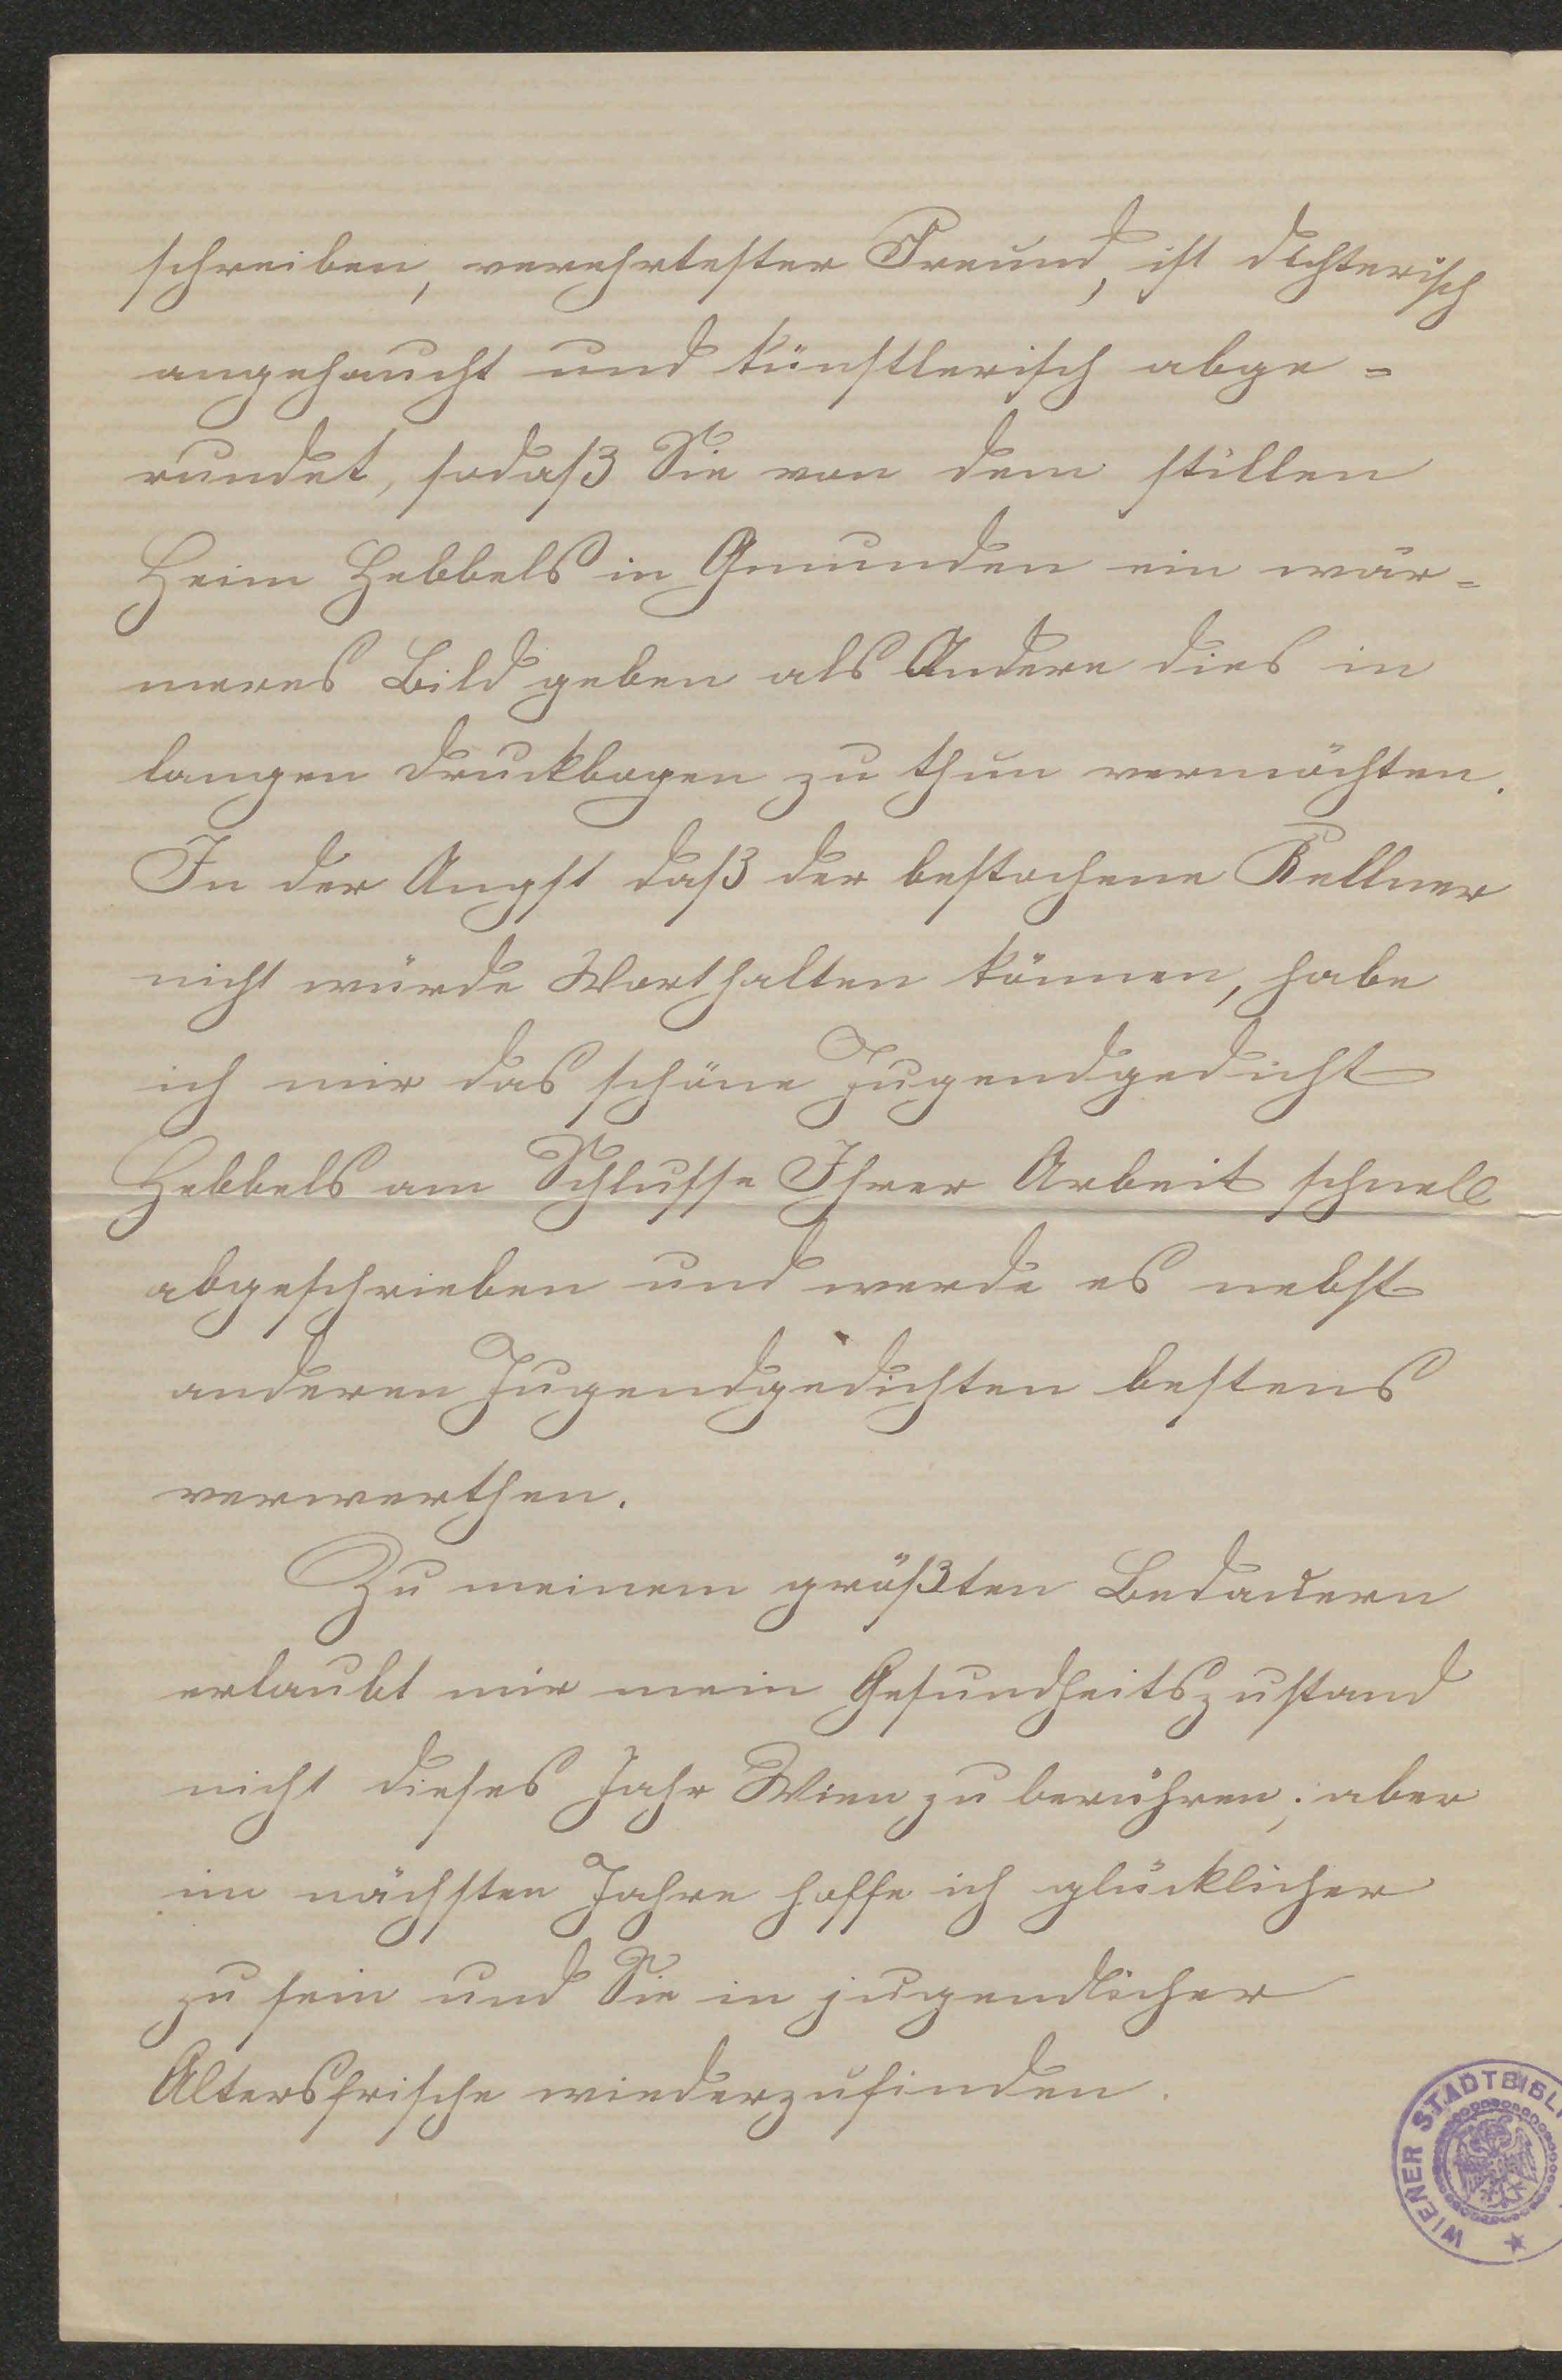 schreiben, verehrtester Freund, ist dichterisch
angehaucht und künstlerisch abge=
rundet, sodaß Sie von dem stillen
Heim Hebbels in Gmunden ein wär=
meres Bild geben als Andere dies in
langen Druckbogen zu thun vermöchten.
In der Angst daß der bestochene Kellner
nicht würde Wort halten können, habe
ich mir das schöne Jugendgedicht
Hebbels am Schlusse Ihrer Arbeit schnell
abgeschrieben und werde es nebst
anderen Jugendgedichten bestens
verwerthen.
Zu meinem größten Bedauern
erlaubt mir mein Gesundheitszustand
nicht dieses Jahr Wien zu berühren; aber
im nächsten Jahre hoffe ich glücklicher
zu sein und Sie in jugendlicher
Altersfrische wiederzufinden.
WIENER STADTBIBLI